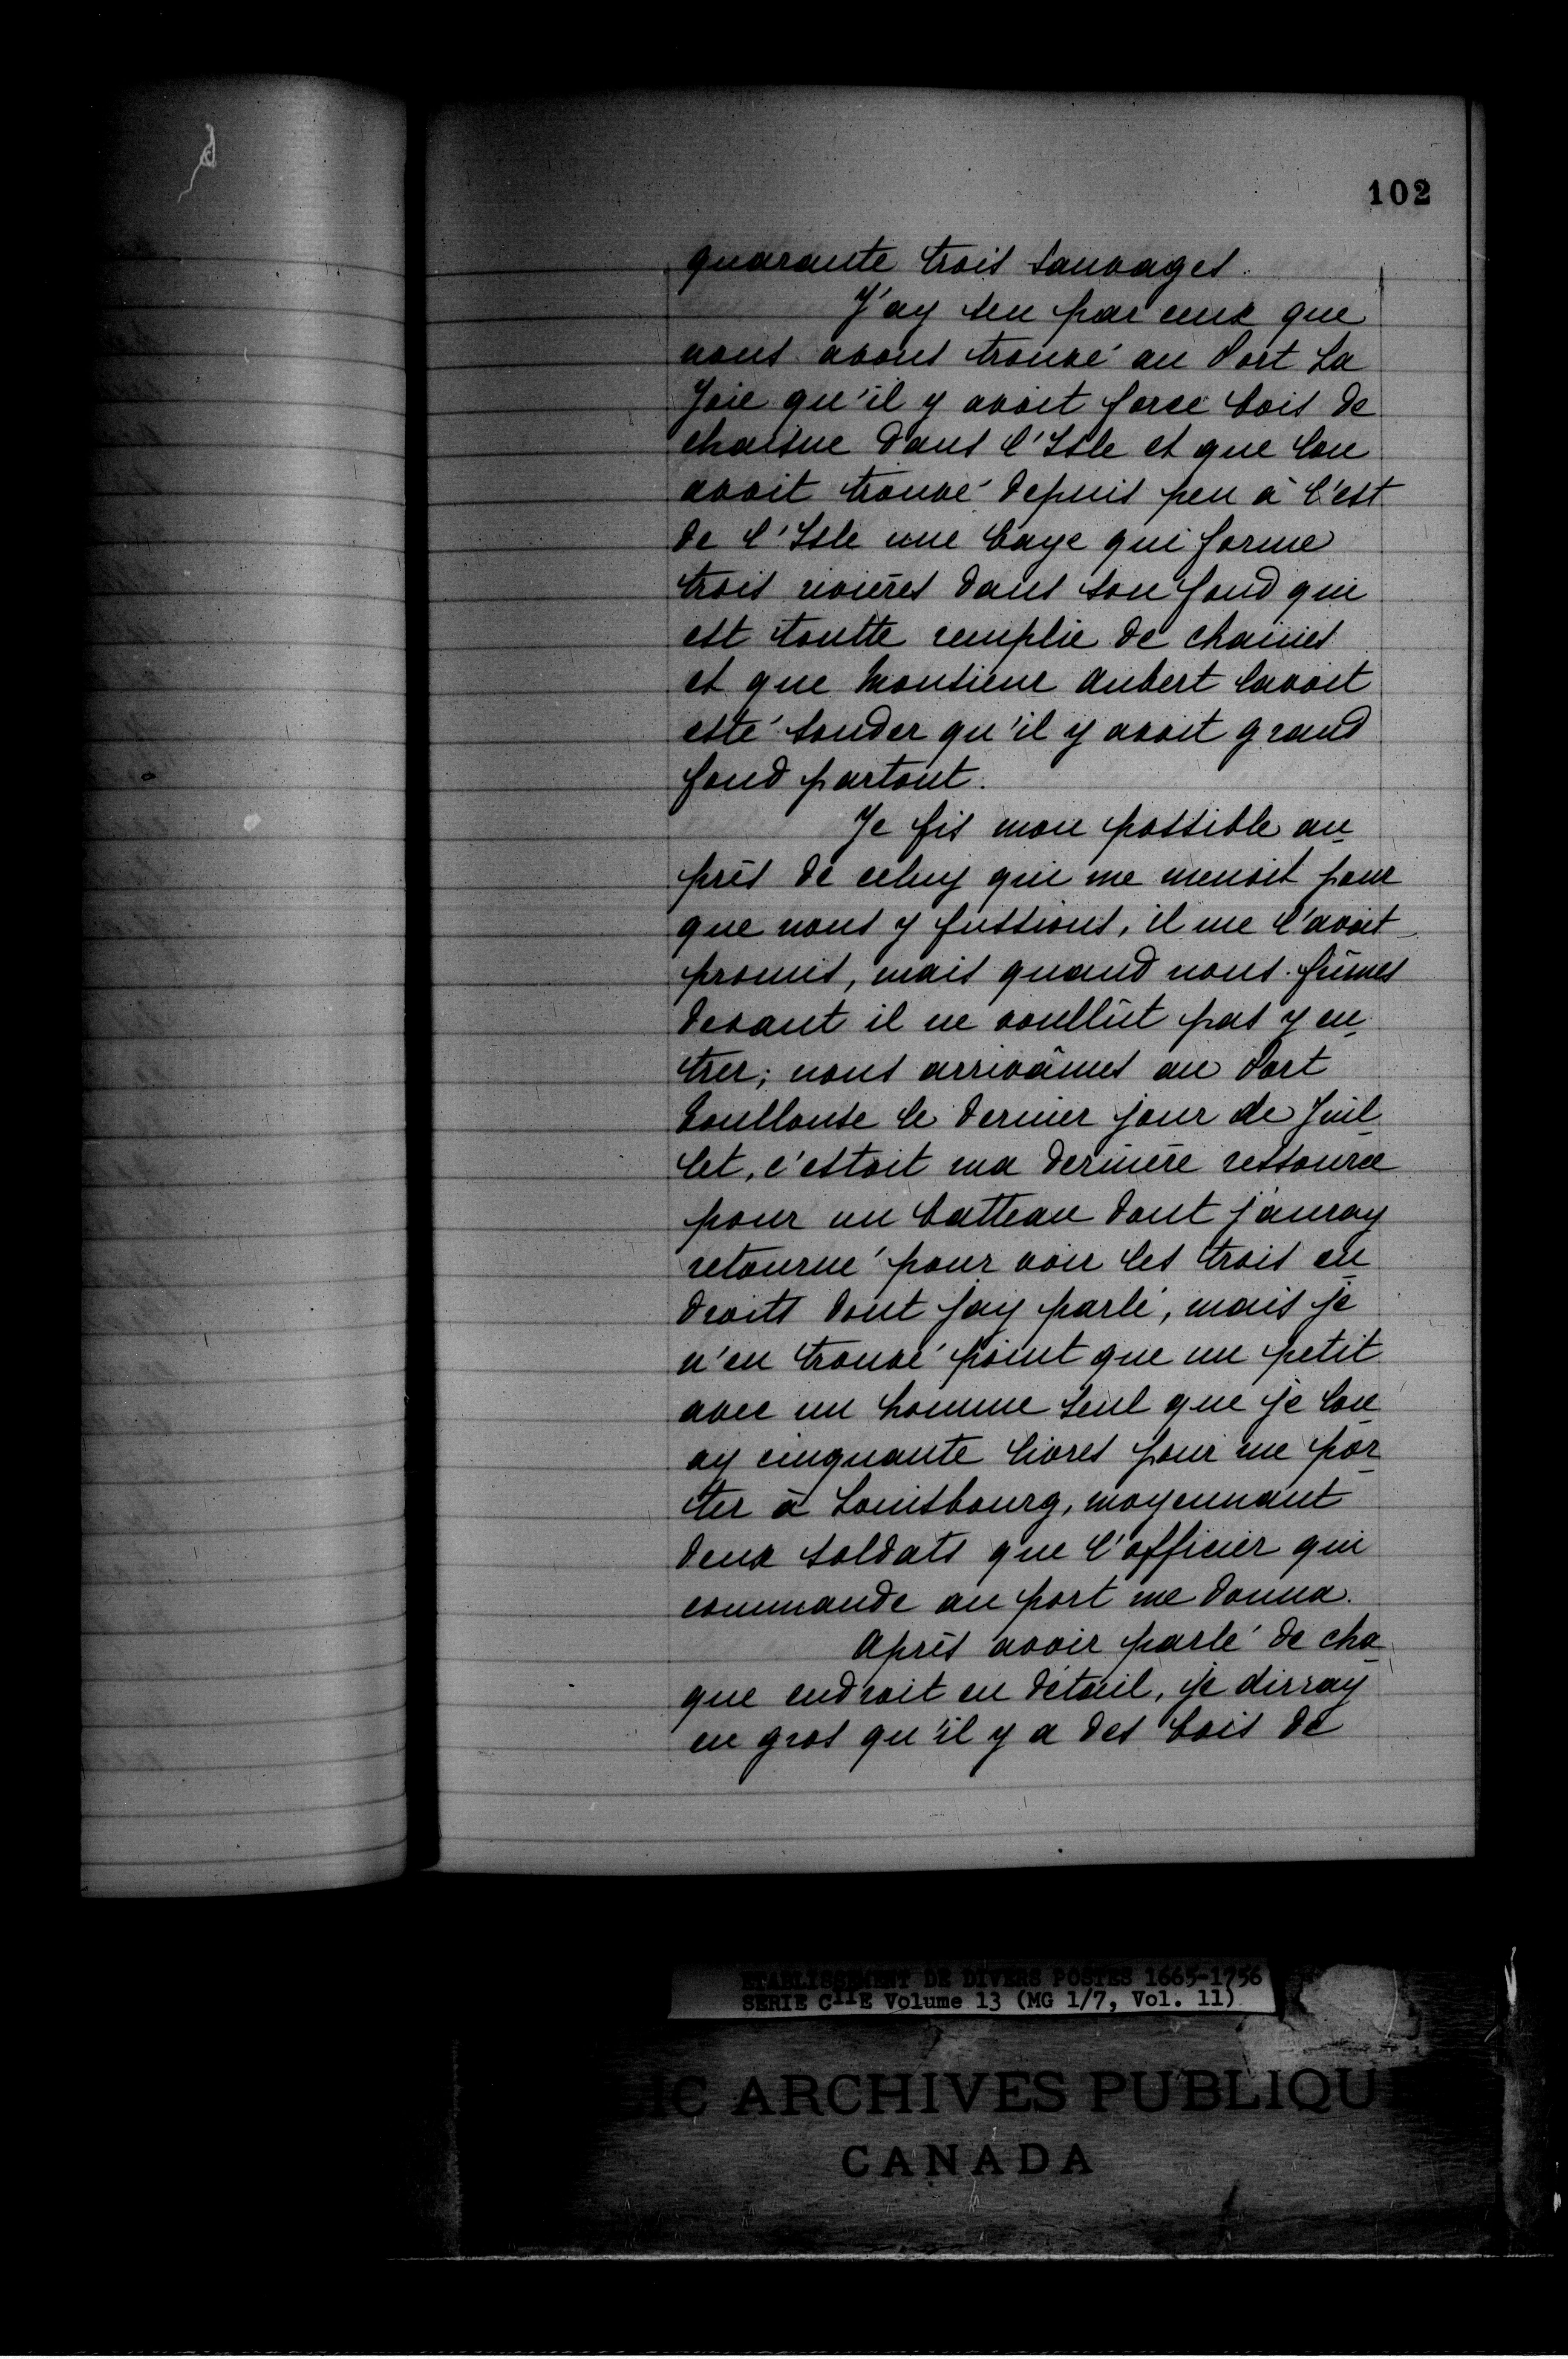 102
quarante trois sauvages.
J'ay seu par eux que
nous avons trouvé au Port La
Joie qu'il y avoit force bois de
chaisne dans l'Isle et que lon
avoit trouvé depuis peu à l'est
de l'Isle une baye qui forme
trois rivières dans son fond qui
est toutte remplie de chaines
et que Monsieur Aubert lavoit
esté sonder qu'il y avoit grand
fond partout.
Je fis mon possible au
près de celuy qui me menoit pour
que nous y fussions, il me l'avoit
promis, mais quand nous fûmes
devant il ne voullût pas y en
trer; nous arrivâmes au Port
Toullouse le dernier jour de Juil
let, c'estoit ma dernière ressource
pour un batteau dont j'auray
retourné pour voir les trois en
droits dont jay parlé, mais je
n'en trouvé point que un petit
avec un homme seul que je lou
ay cinquante livres pour me por
ter à Louisbourg, moyennant
deux soldats que l'officier qui
commande au port me donna.
Après avoir parlé de cha
que endroit en détail, je dirray
en gros qu'il y a des bois de
ETABLISSEMENT DE DIVERS POSTES 1665-1756
SERIE C11E Volume 13 (MG 1/7, Vol. 11)
IC ARCHIVES PUBLIQU
CANADA